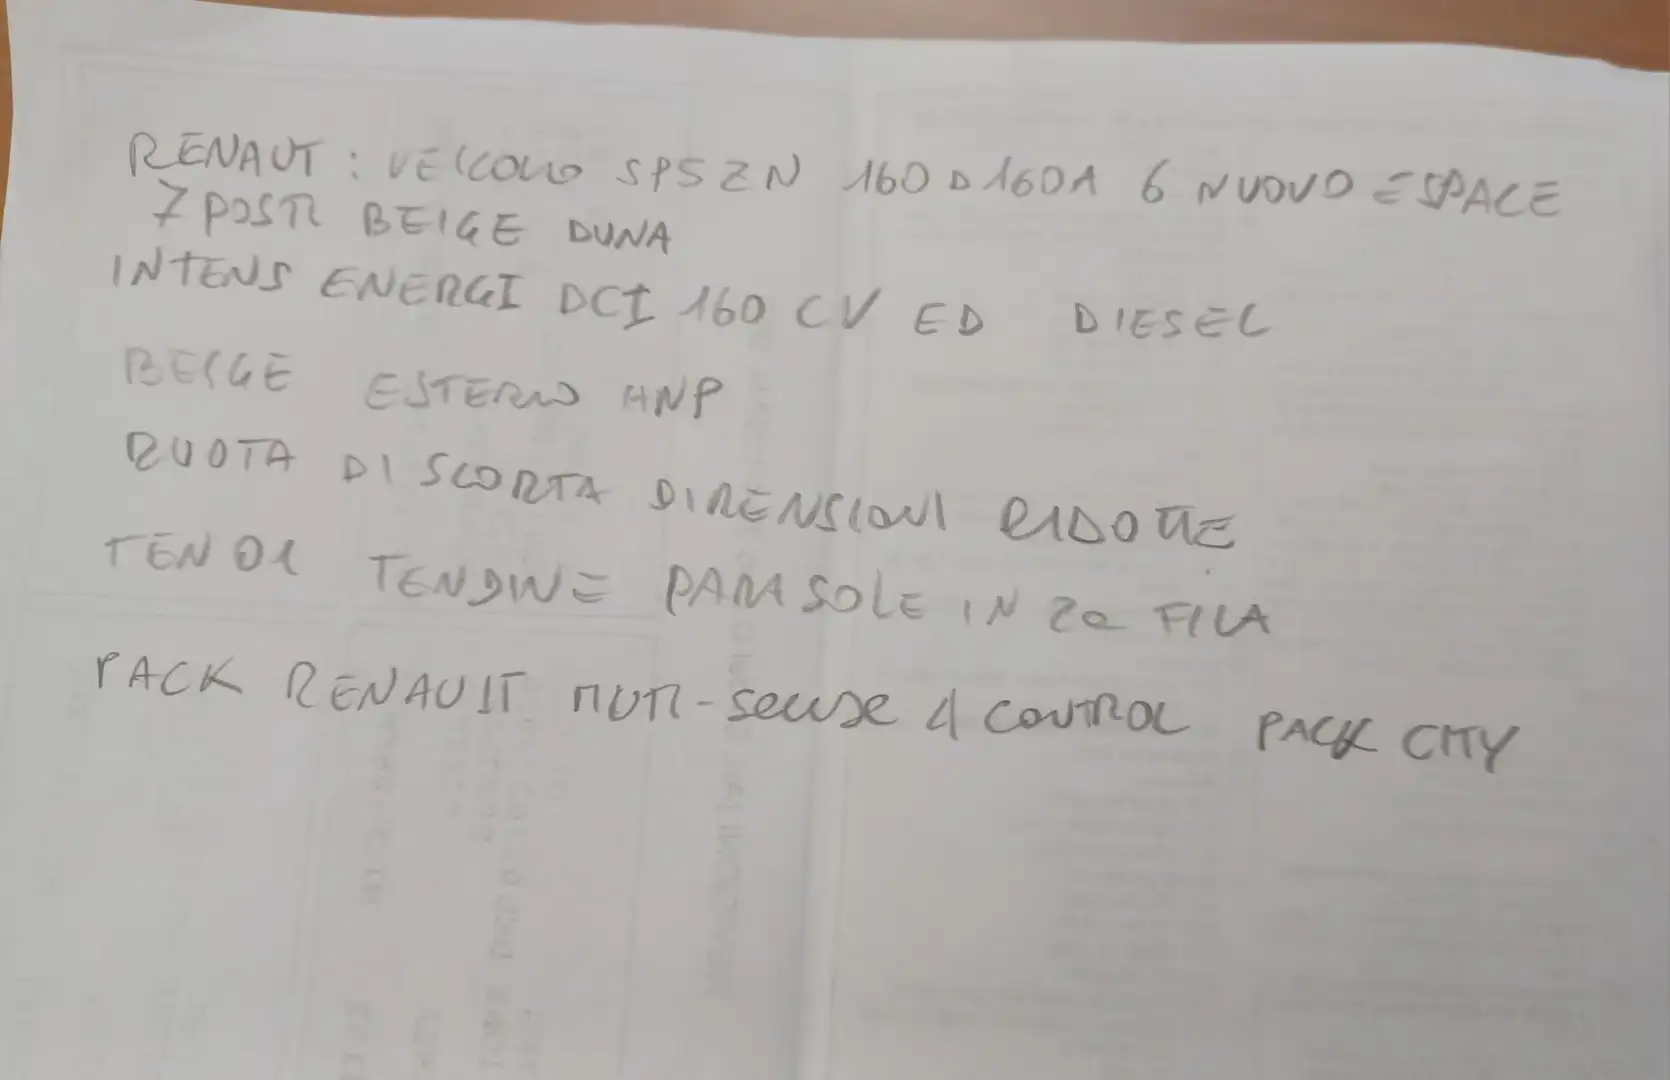 RENAUT: VEICOLO SP5ZN 160D160A 6 NUOVO ESPACE
7 POSTI BEIGE DUNA
INTENS ENERGI DCI 160 CV ED DIESEL
BEIGE ESTERNO HNP
RUOTA DI SCORTA DIMENSIONI RIDOTTE
TEN01 TENDINE PARASOLE IN 2a FILA
PACK RENAULT MUTI-SENSE 4 CONTROL PACK CITY